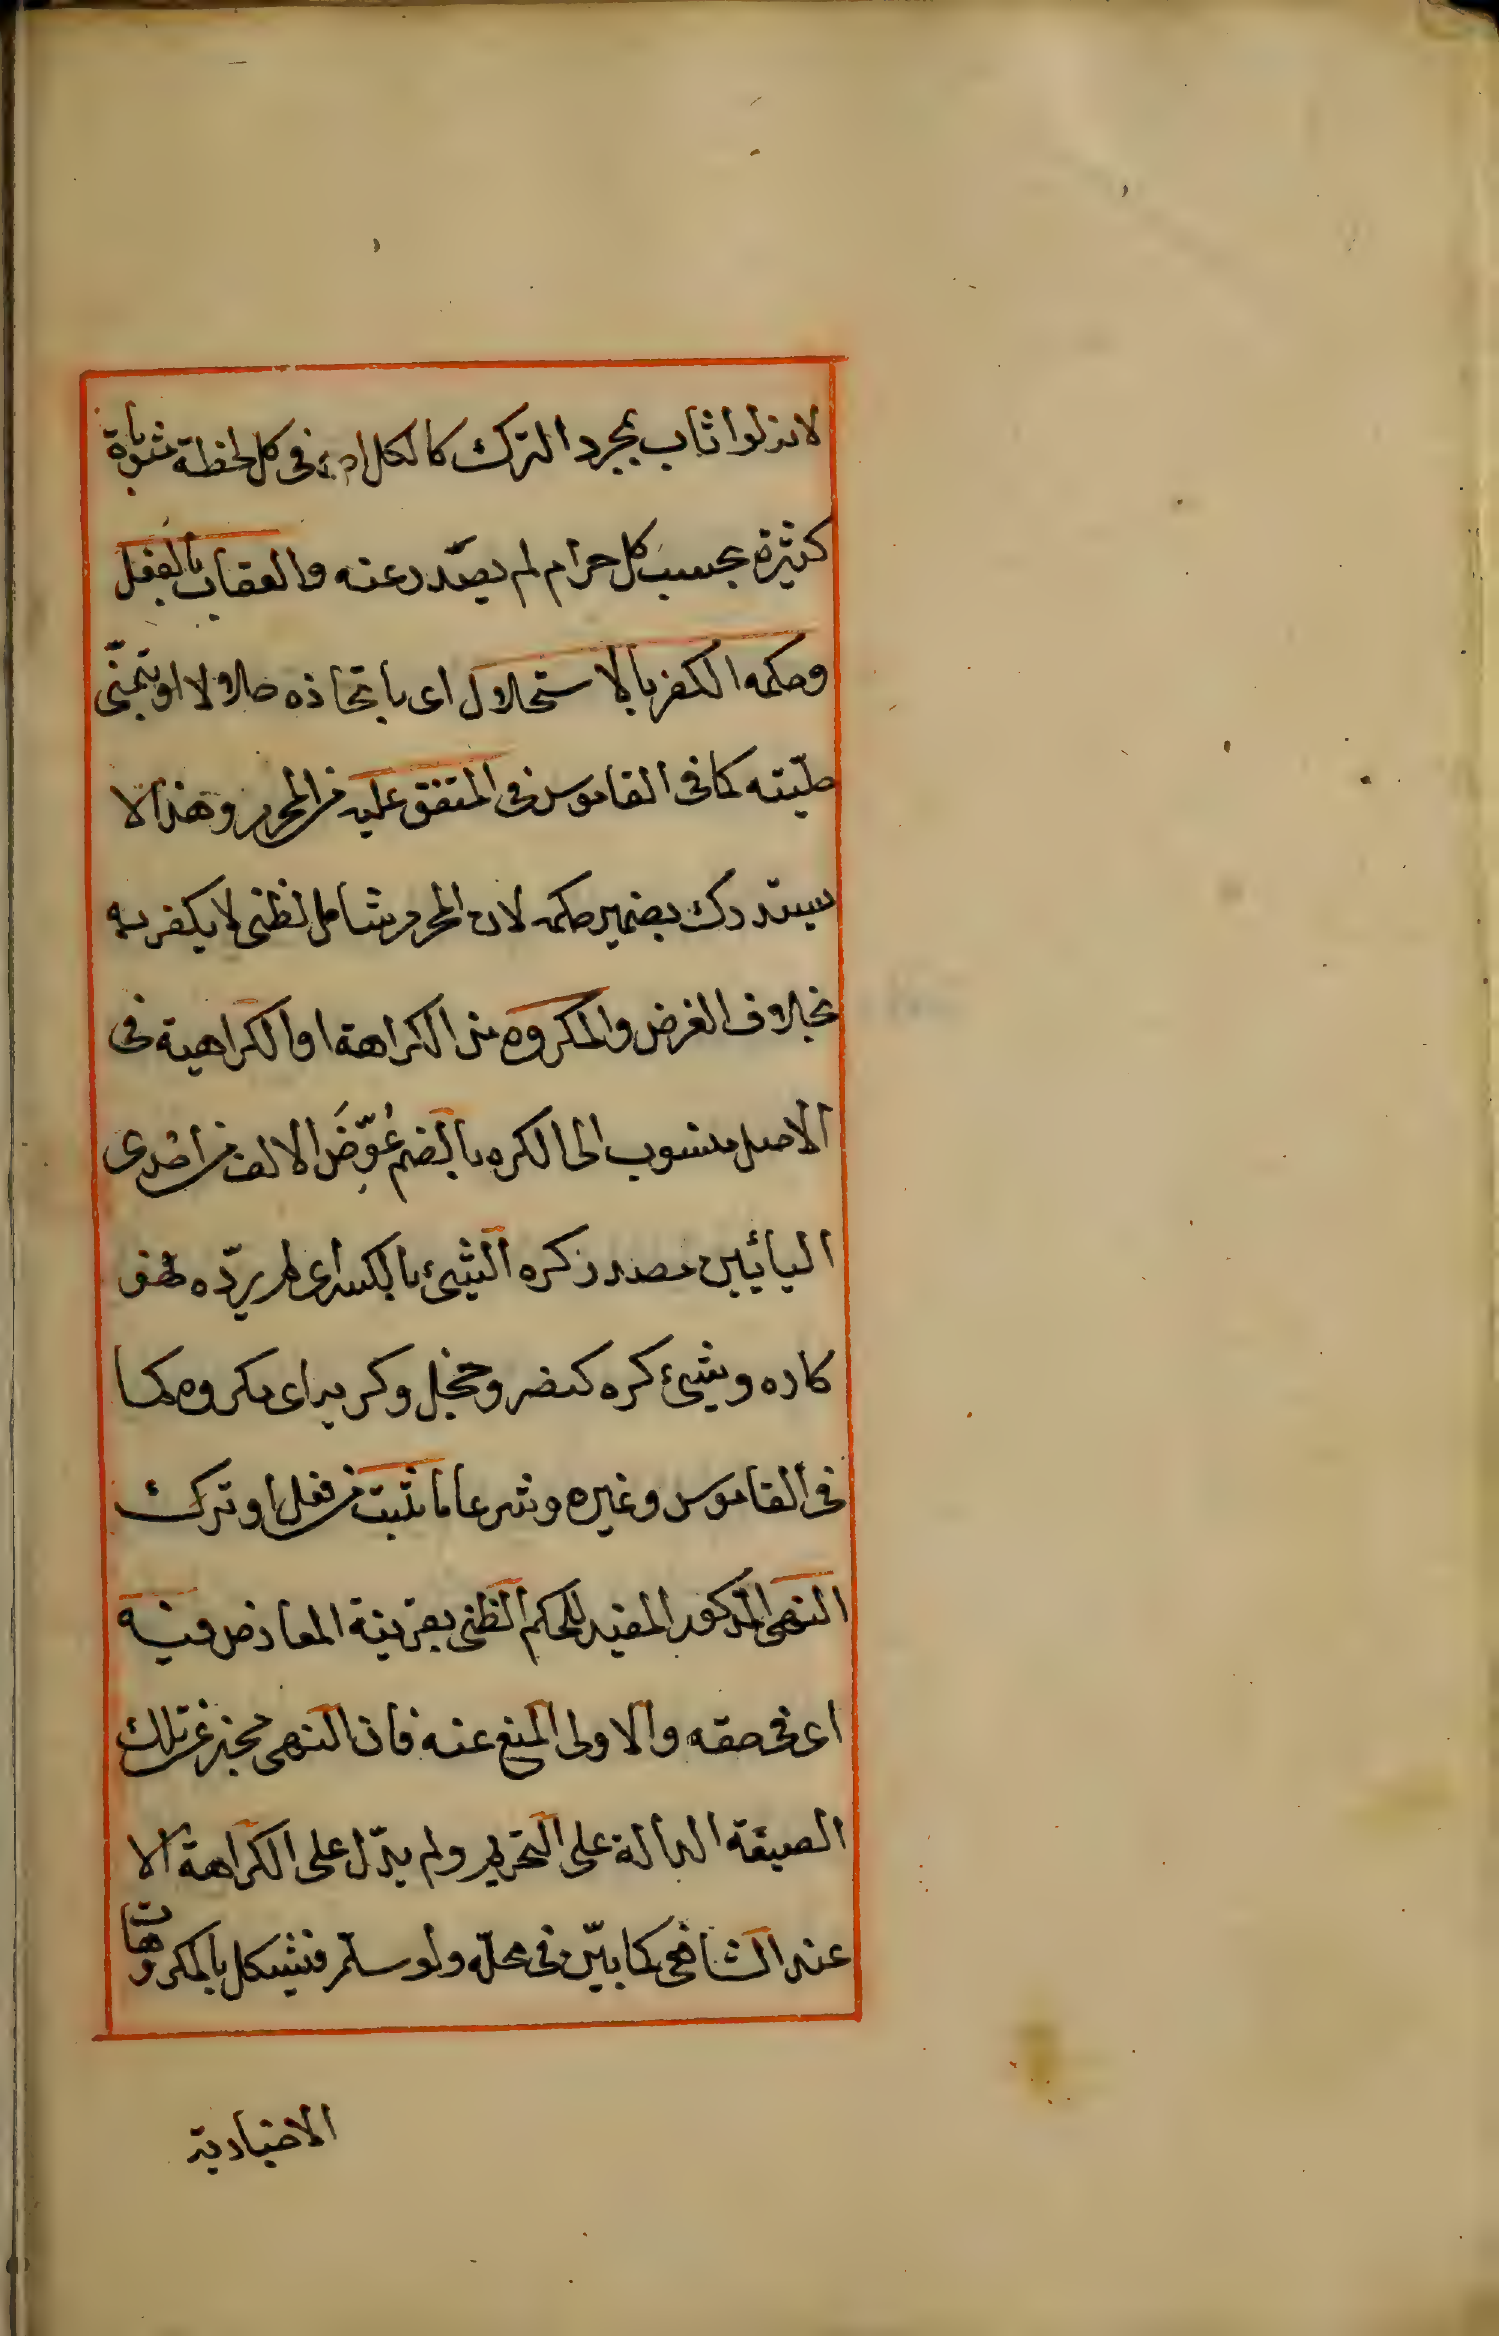 لانه لو اثاب بمجرد الترك كالكل احد في كل لحظة مثوبات
كثيرة بحسب كل حرام لم يصدر عنه والعقاب بالفعل
وحكمه الكفر بالاستحلال اى باتخاذه حلالا او بتمنى
حليته كما فى القاموس فى المتفق عليه من المحرم وهذا لا
يستدرك بضمير حكمه لان المحرم شامل لظنى لا يكفر به
بخلاف الفرض والمكروه من الكراهة او الكراهية فى
الاصل منسوب الى الكره بالضم عُوّضَ الالف من احدى
اليائين مصدر كره الشيئ بالكسر اى لم يردّه فهو
كاره وشيئ كره كنصر وخجل وكريه اى مكروه كما
فى القاموس وغيره وشرعا ما ثبت من فعل او ترك
النهى المذكور المفيد للحكم الظنى بقرينة المعارض فيه
اى فى حقه والاولى المنع عنه فان النهى مجز عن تلك
الصيغة الدالة على التحريم ولم يدّل على الكراهة الا
عند الشافعى كما بيّن فى محلّه ولو سلّم فيشكل بالمكروهات
الاختيارية